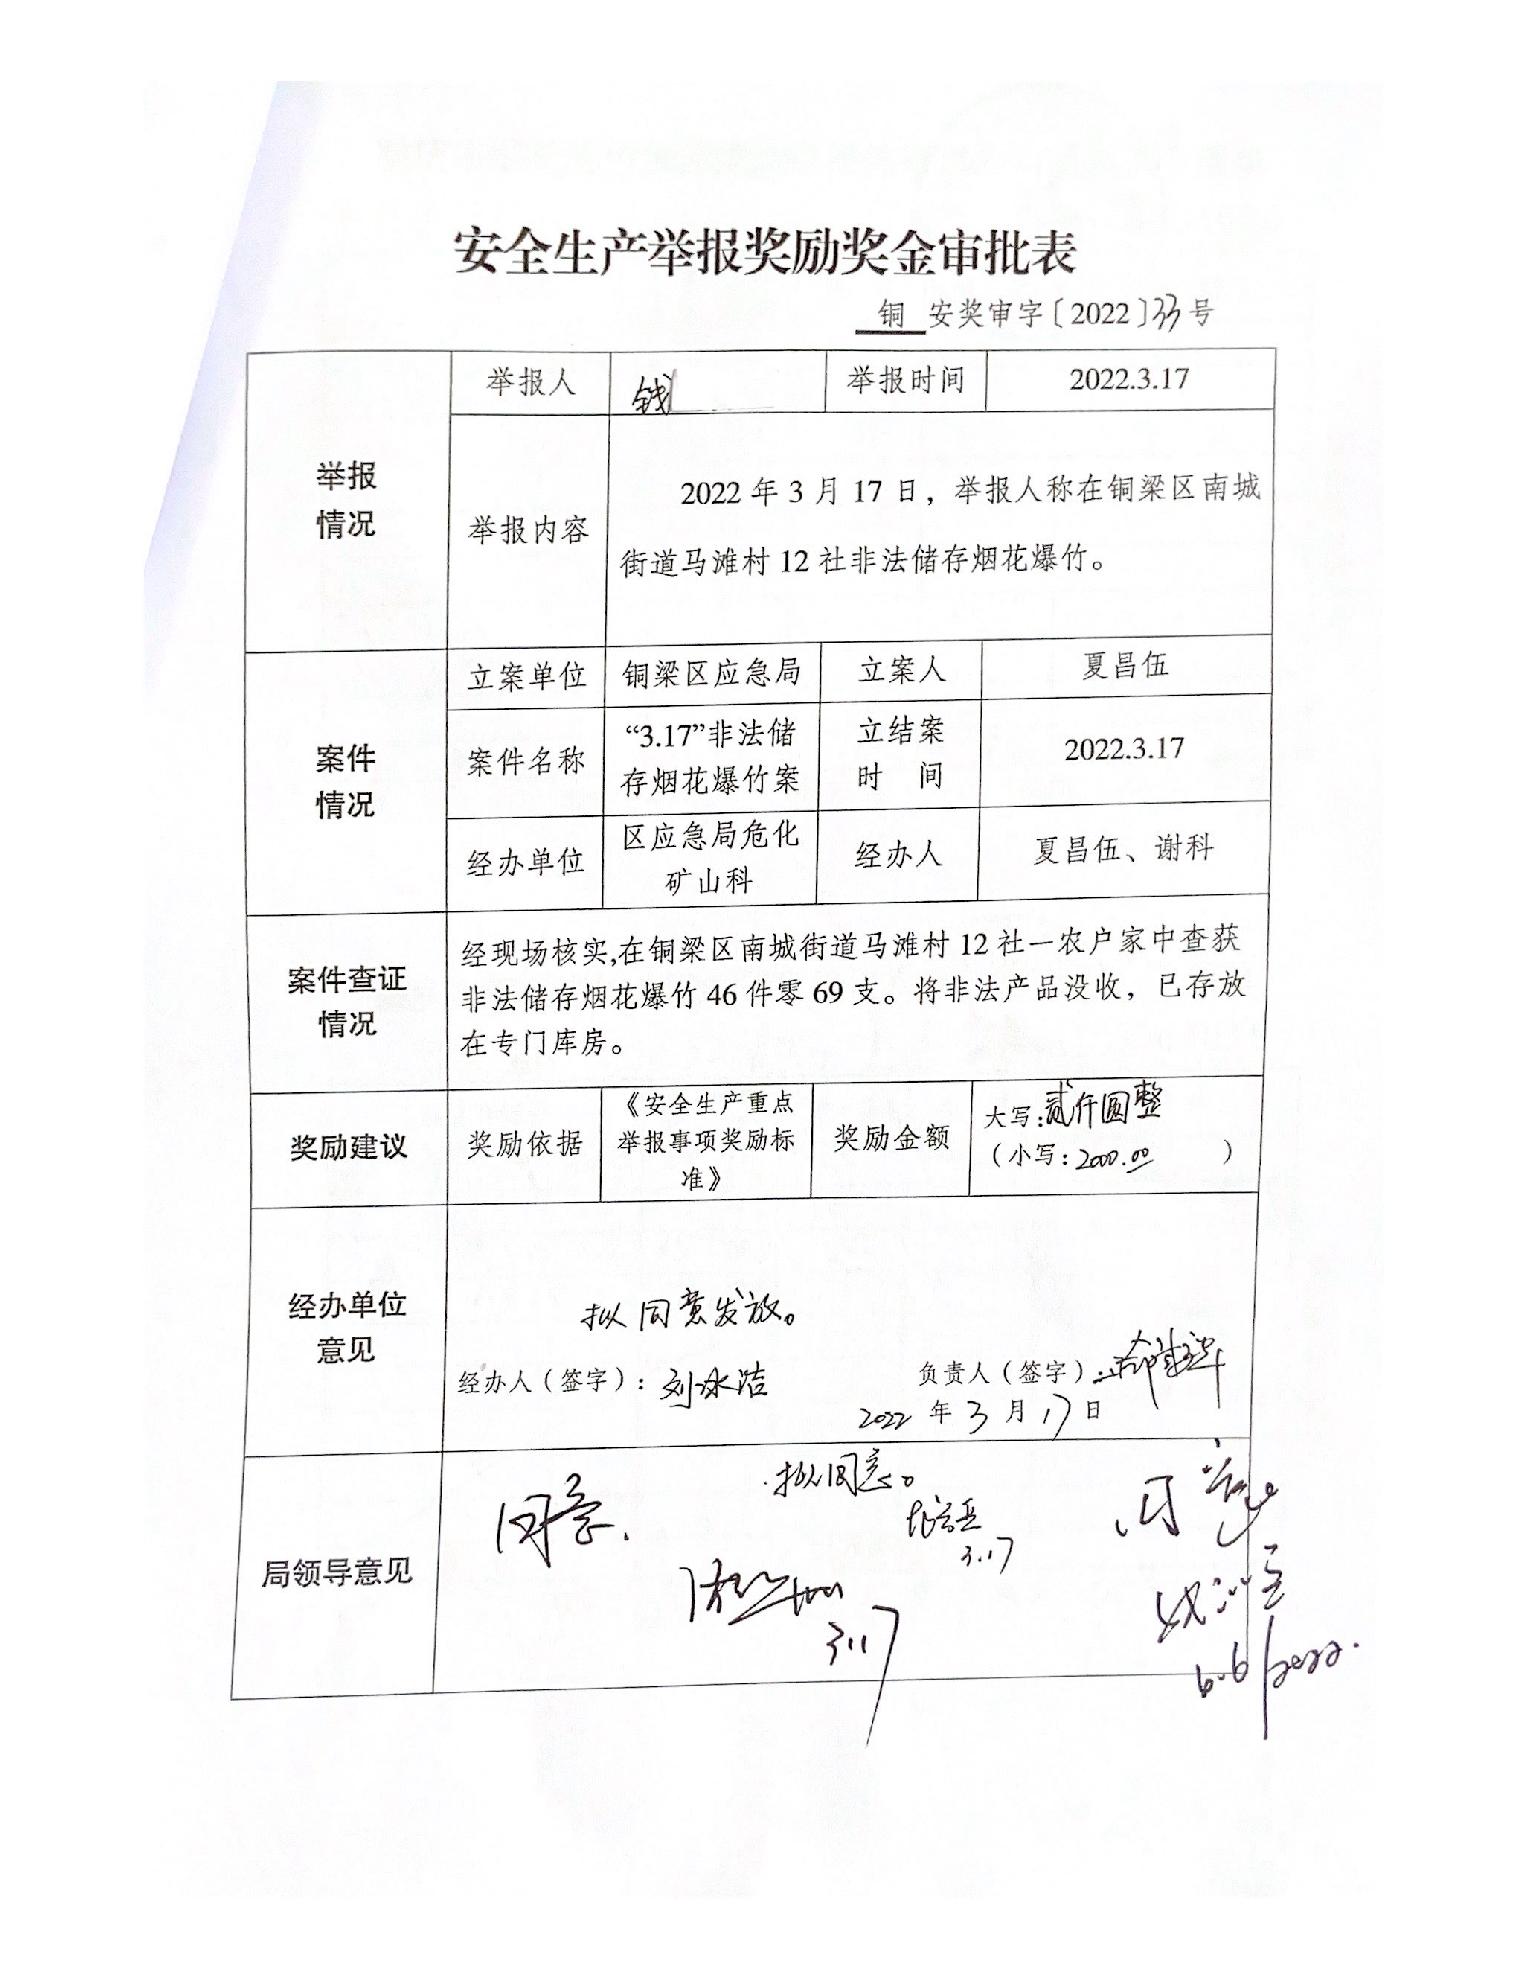 安全生产举报奖励奖金审批表
铜 安奖审字〔2022〕33号
举报情况
举报人 钱
举报时间 2022.3.17
举报内容
2022 年 3 月 17 日，举报人称在铜梁区南城
街道马滩村 12 社非法储存烟花爆竹。
案件情况
立案单位 铜梁区应急局 立案人 夏昌伍
案件名称
“3.17”非法储
存烟花爆竹案
立结案
时 间
2022.3.17
经办单位
区应急局危化
矿山科
经办人 夏昌伍、谢科
案件查证
情况
经现场核实,在铜梁区南城街道马滩村 12 社一农户家中查获
非法储存烟花爆竹 46 件零 69 支。将非法产品没收，已存放
在专门库房。
奖励建议 奖励依据
《安全生产重点
举报事项奖励标
准》
奖励金额
大写:贰仟圆整
（小写:2000.00 ）
经办单位
意见
拟同意发放。
经办人（签字）: 刘冰洁 负责人（签字）:
2022 年 3 月 17 日
局领导意见
同意.
拟同意。
3.17
3.17
同意
6.6/2022.